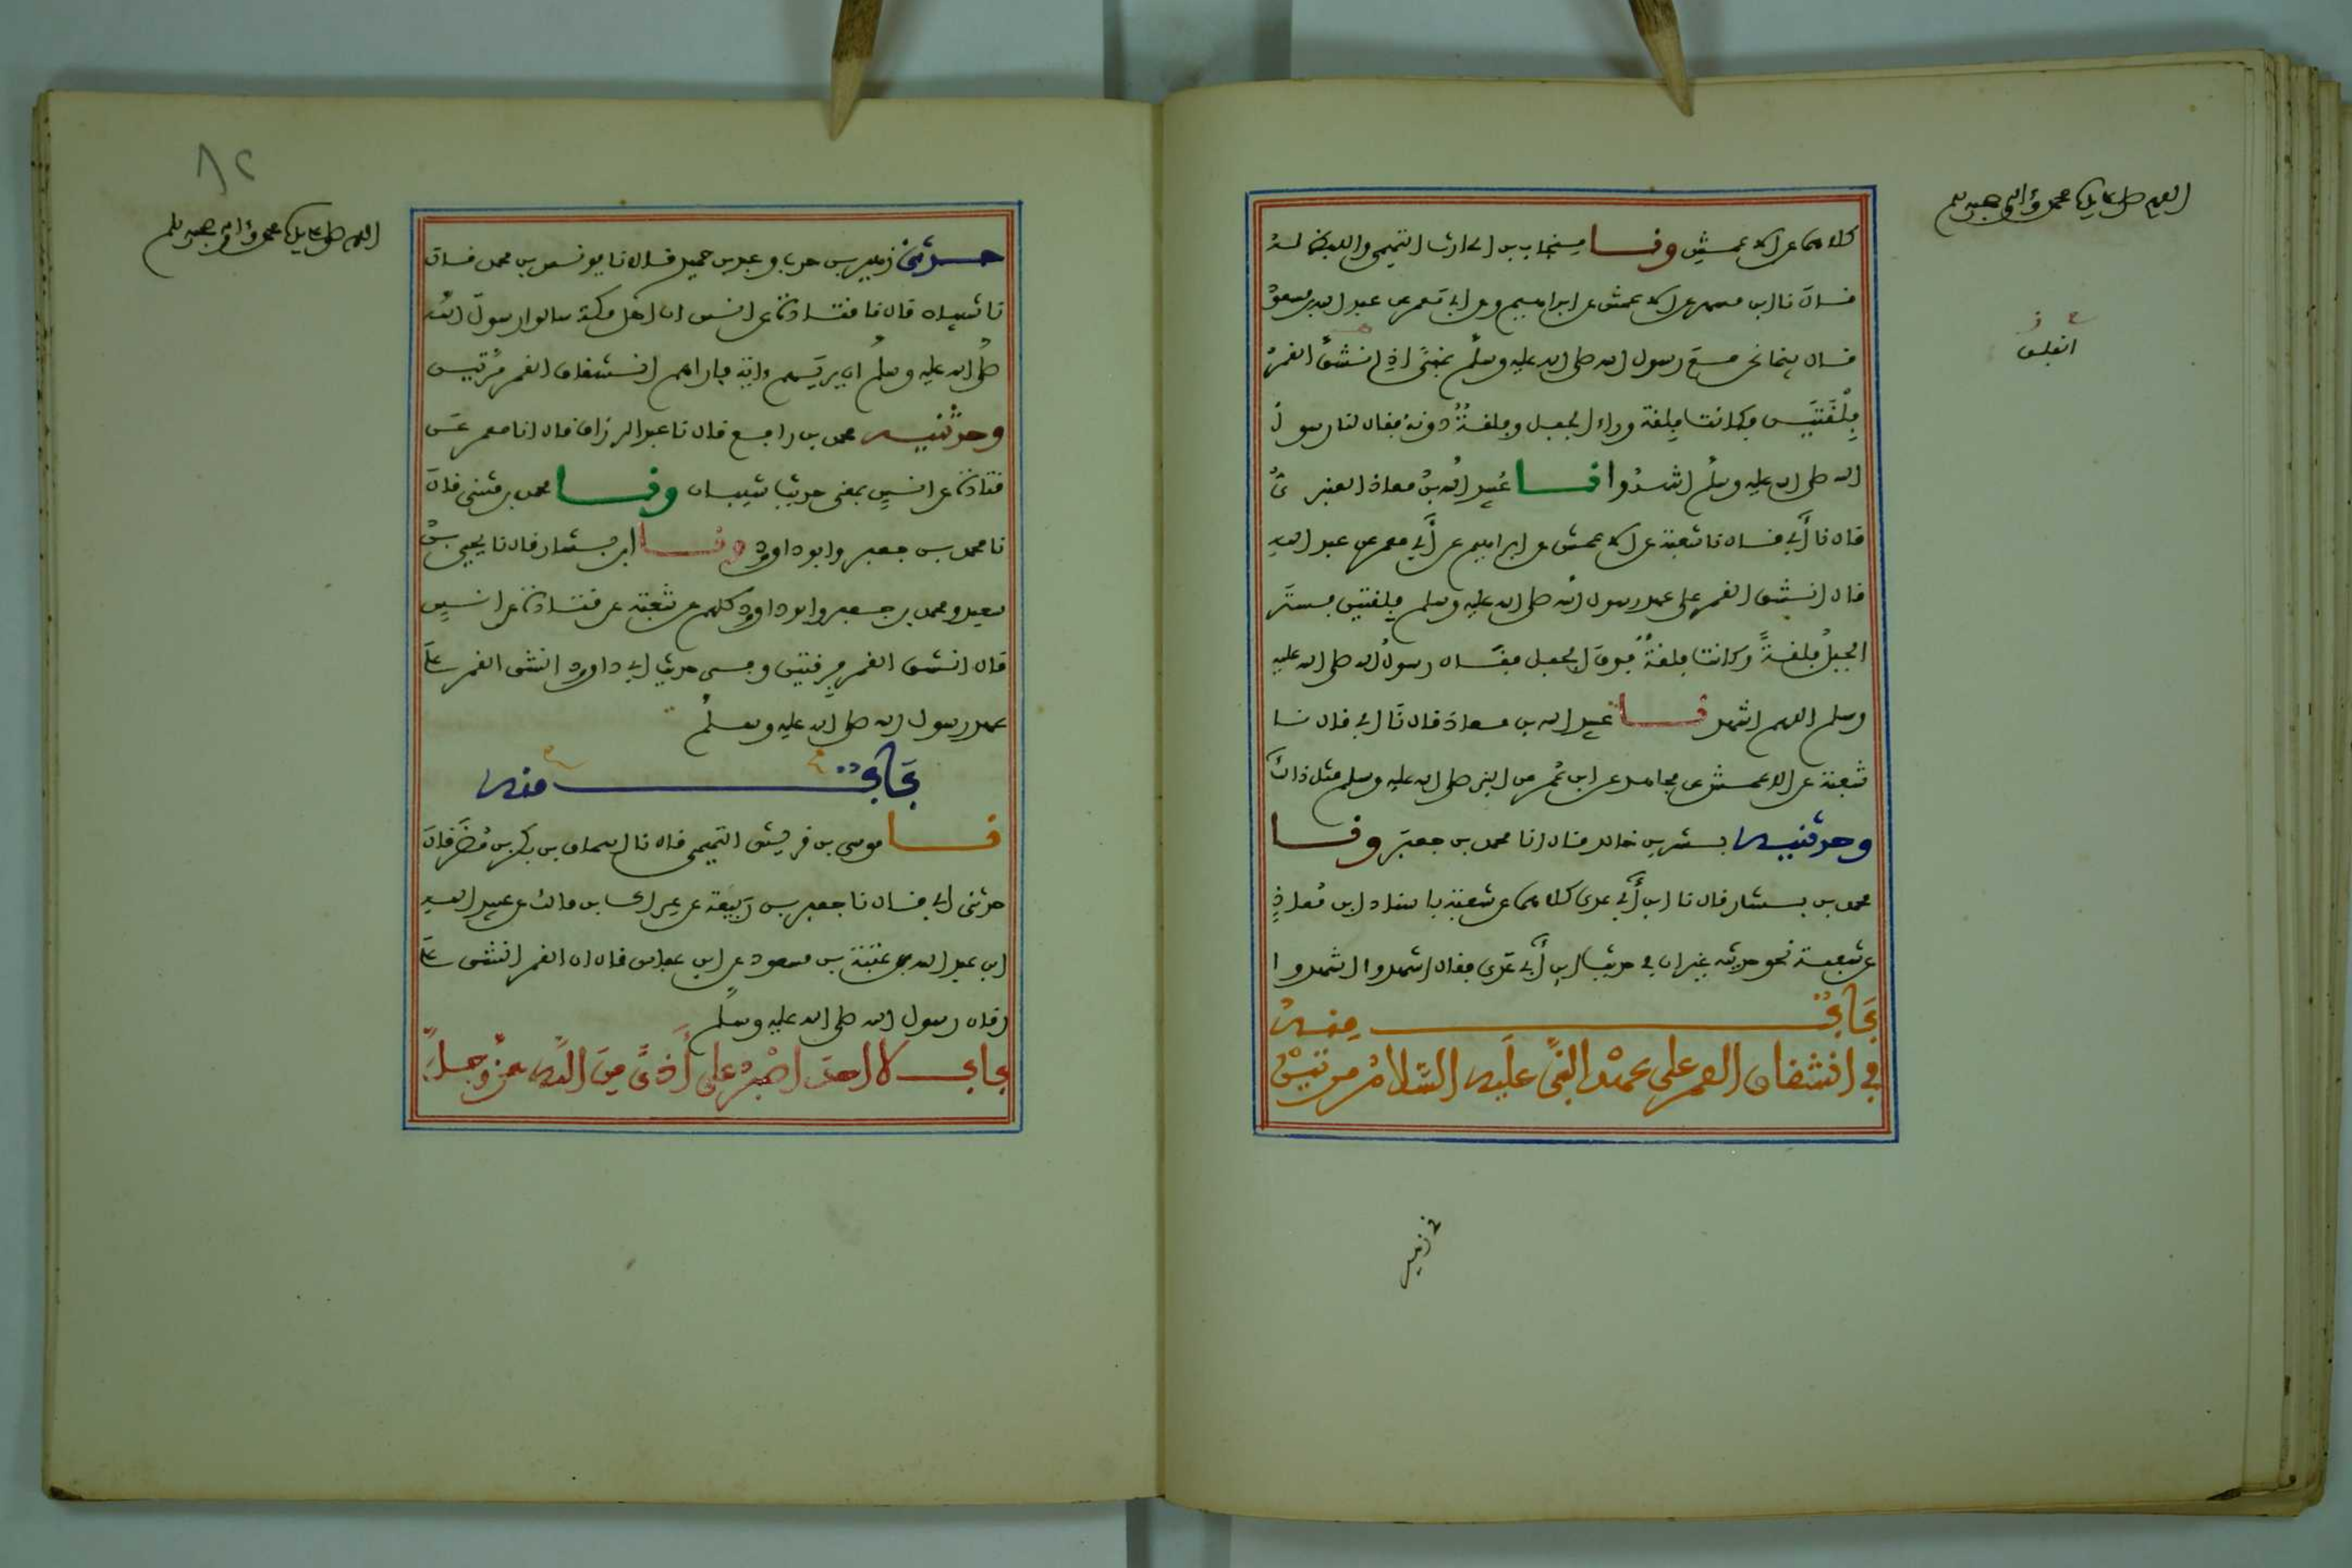 اللهم صل على سيدنا محمد وءاله وصحبه وسلم
كلاهما عن الاعمش ونا منجاب بن الحارث التميمي واللفظ له
قال نا ابن مسهر عن الاعمش عن ابراهيم عن ابي معمر عن عبد الله بن مسعود
قال بينما نحن مع رسول الله صلى الله عليه وسلم بمنى اذ انشق القمر
انفلق
فلقتين فكانت فلقة وراء الجبل وفلقة دونه فقال لنا رسول
الله صلى الله عليه وسلم اشهدوا نا عبيد الله بن معاذ العنبري
قال نا أبي قال نا شعبة عن الاعمش عن ابراهيم عن أبي معمر عن عبد الله
قال انشق القمر على عهد رسول الله صلى الله عليه وسلم فلقتين فستر
الجبل فلقة وكانت فلقة فوق الجبل فقال رسول الله صلى الله عليه
وسلم اللهم اشهد نا عبيد الله بن معاذ قال نا ابي قال نا
شعبة عن الاعمش عن مجاهد عن ابن عمر عن النبي صلى الله عليه وسلم مثل ذلك
وحدثنيه بشر بن خالد قال انا محمد بن جعفر ونا
محمد بن بشار قال نا ابن أبي عدي كلاهما عن شعبة باسناد ابن معاذ
عن شعبة نحو حديثه غير ان في حديث ابن أبي عدي فقال اشهدوا اشهدوا
باب منه
في انشقاق القمر على عهد النبي عليه السلام مرتين
زهير
٨٢
اللهم صل على سيدنا محمد وءاله وصحبه وسلم
حدثني زهير بن حرب وعبد بن حميد قالا نا يونس بن محمد قال
نا شيبان قال نا قتادة عن انس ان اهل مكة سالوا رسول الله
صلى الله عليه وسلم ان يريهم ءاية فاراهم انشقاق القمر مرتين
وحدثنيه محمد بن رافع قال نا عبد الرزاق قال انا معمر عن
قتادة عن انس بمعنى حديث شيبان ونا محمد بن مثنى قال
نا محمد بن جعفر وابو داود ونا ابن بشار قال نا يحيى بن
سعيد ومحمد بن جعفر وابو داود كلهم عن شعبة عن قتادة عن انس
قال انشق القمر فرقتين وفي حديث ابي داود انشق القمر على
عهد رسول الله صلى الله عليه وسلم
باب منه
نا موسى بن قريش التميمي قال نا اسحاق بن بكر بن مضر قال
حدثني ابي قال نا جعفر بن ربيعة عن عراك بن مالك عن عبيد الله
ابن عبد الله بن عتبة بن مسعود عن ابن عباس قال ان القمر انشق على
زمان رسول الله صلى الله عليه وسلم
باب لا احد اصبر على أذى من الله عز وجل